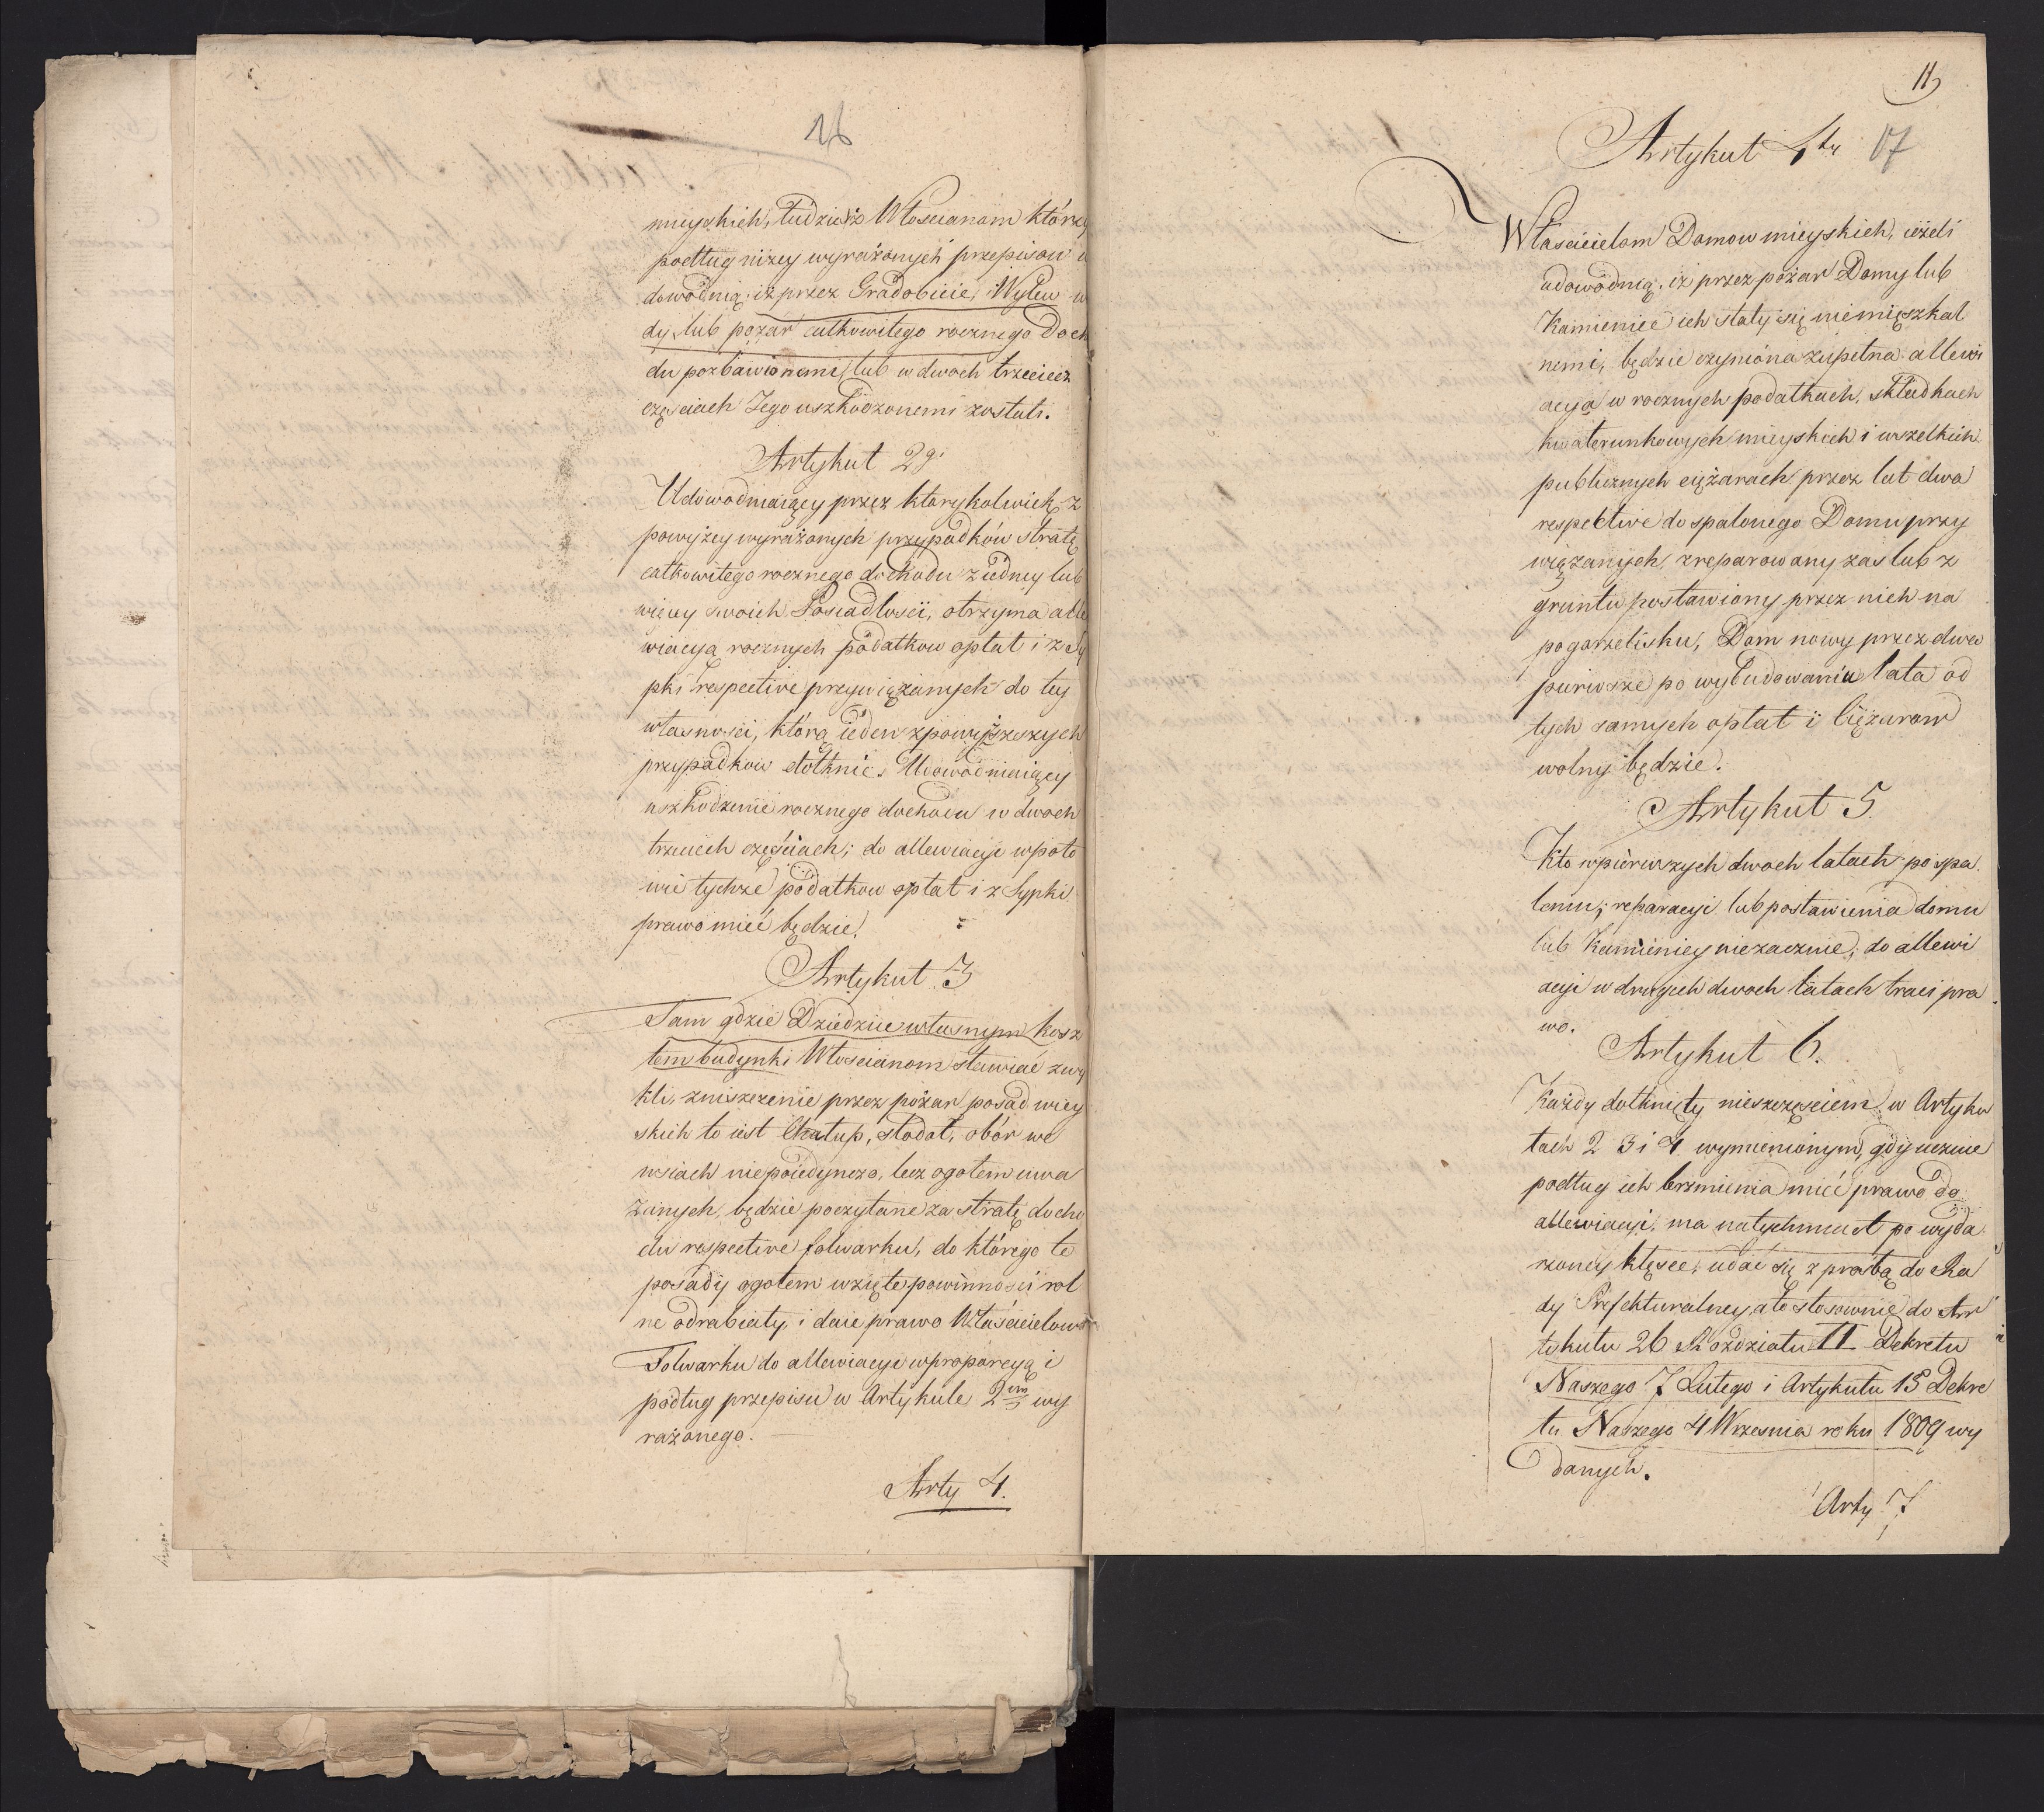 16
mieyskich, tudzież Włoscianom którzy
podług niżey wyrażonych przepisow u
dowodnią, iż przez Gradobicie, Wylew w
dy, lub pożar całkowitego rocznego Doch
du pozbawionemi, lub w dwoch trzeciech
częsciach Jego uszkodzonemi zostali.
Artykuł 2gi
Udowodniaiący przez którykolwiek z
powyżey wyrażonych przypadków stratę
całkowitego rocznego dochodu z iedney lub
więcey swoich Posiadłości, otrzyma alle
wiacyą rocznych podatkow opłat i z Sy
pki respective przywiązanych do tey
własności, którą ieden z powyższych
przypadkow dotknie. Udowodniaiący
uszkodzenie rocznego dochodu w dwoch
trzecich częściach; do allewiacyi w poło
wie tychże podatkow opłat i z Sypki
prawo mieć będzie.
Artykuł 3
Tam gdzie Dziedzice własnym kosz
tem budynki Włoscianom stawiać zwy
kli, zniszczenie przez pożar posad wiey
skich to iest Chałup, stodoł, obór we
wsiach niepoiedynczo, lecz ogołem uwa
żanych, będzie poczytane za stratę docho
du respective folwarku, do którego te
posady ogołem wzięte powinności rol
ne odrabiały, i daie prawo Właścicielowi
Folwarku do allewiacyi w proporcyą i
podług przepisu w Artykule 2m wy
rażonego.
Arty 4.
11
Artykuł 4ty 17
Właścicielom Domow mieyskich, ieżeli
udowodnią, iż przez pożar Domy lub
Kamienice ich stały się niemieszkal
nemi, będzie czyniona zupełna allewi
acya w rocznych podatkach, składkach
kwaterunkowych mieyskich i wszelkich
publicznych ciężarach przez lat dwa
respective do spalonego Domu przy
wiązanych, zreparowany zas lub z
gruntu postawiony przez nich na
pogorzelisku, Dom nowy przez dwa
pierwsze po wybudowaniu lata od
tych samych opłat i Ciężarow
wolny będzie.
Artykuł 5.
Kto w pierwszych dwoch latach po spa
leniu, reparacyi lub postawienia domu
lub Kamienicy niezacznie, do allewi
acyi w drugich dwoch latach traci pra
wo.
Artykuł 6.
Każdy dotknięty nieszczęsciem w Artyku
łach 2 3 i 4 wymienionym, gdy uczuie
podług ich brzmienia mieć prawo do
allewiacyi, ma natychmiast po wyda
rzoney klęsce, udać się z prośbą do Ra
dy Prefekturalney, a to stosownie do Ar
tykułu 26 Rozdziału II Dekretu
Naszego 7 Lutego i Artykułu 15 Dekre
tu Naszego 4 Wrzesnia roku 1809 wy
danych.
Arty 7